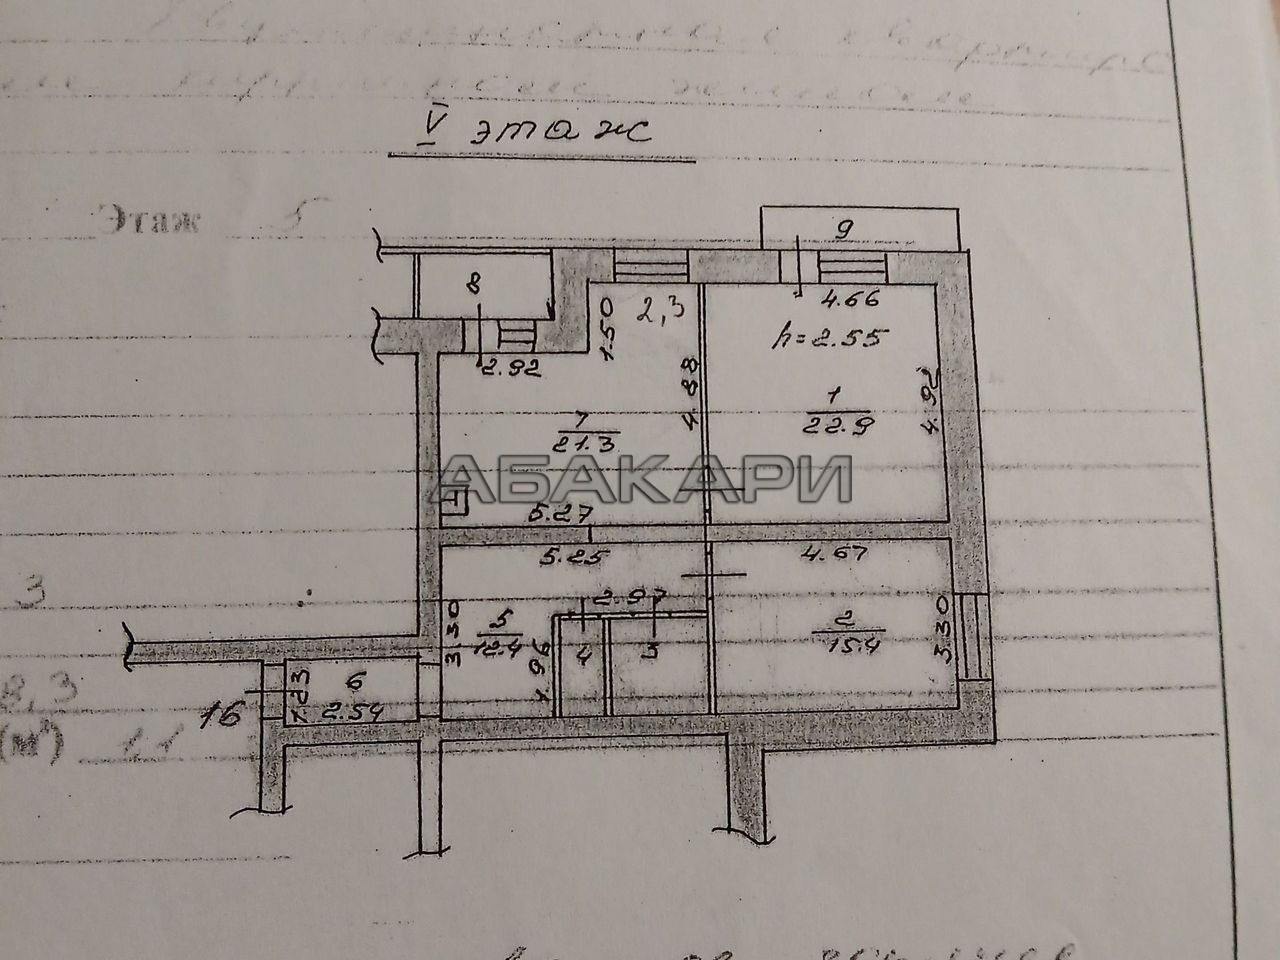 V этаж
Этаж 5
9
8
4.66
1.50
2,3
h=2.55
2.92
4.88
4.92
1
22.9
7
21.3
АБАКАРИ
5.27
5.25
4.67
2.97
3
3.30
5
12.4
1.96
4
3
2
15.4
3.30
8,3
16
1.23
6
2.54
(м²) 1,1